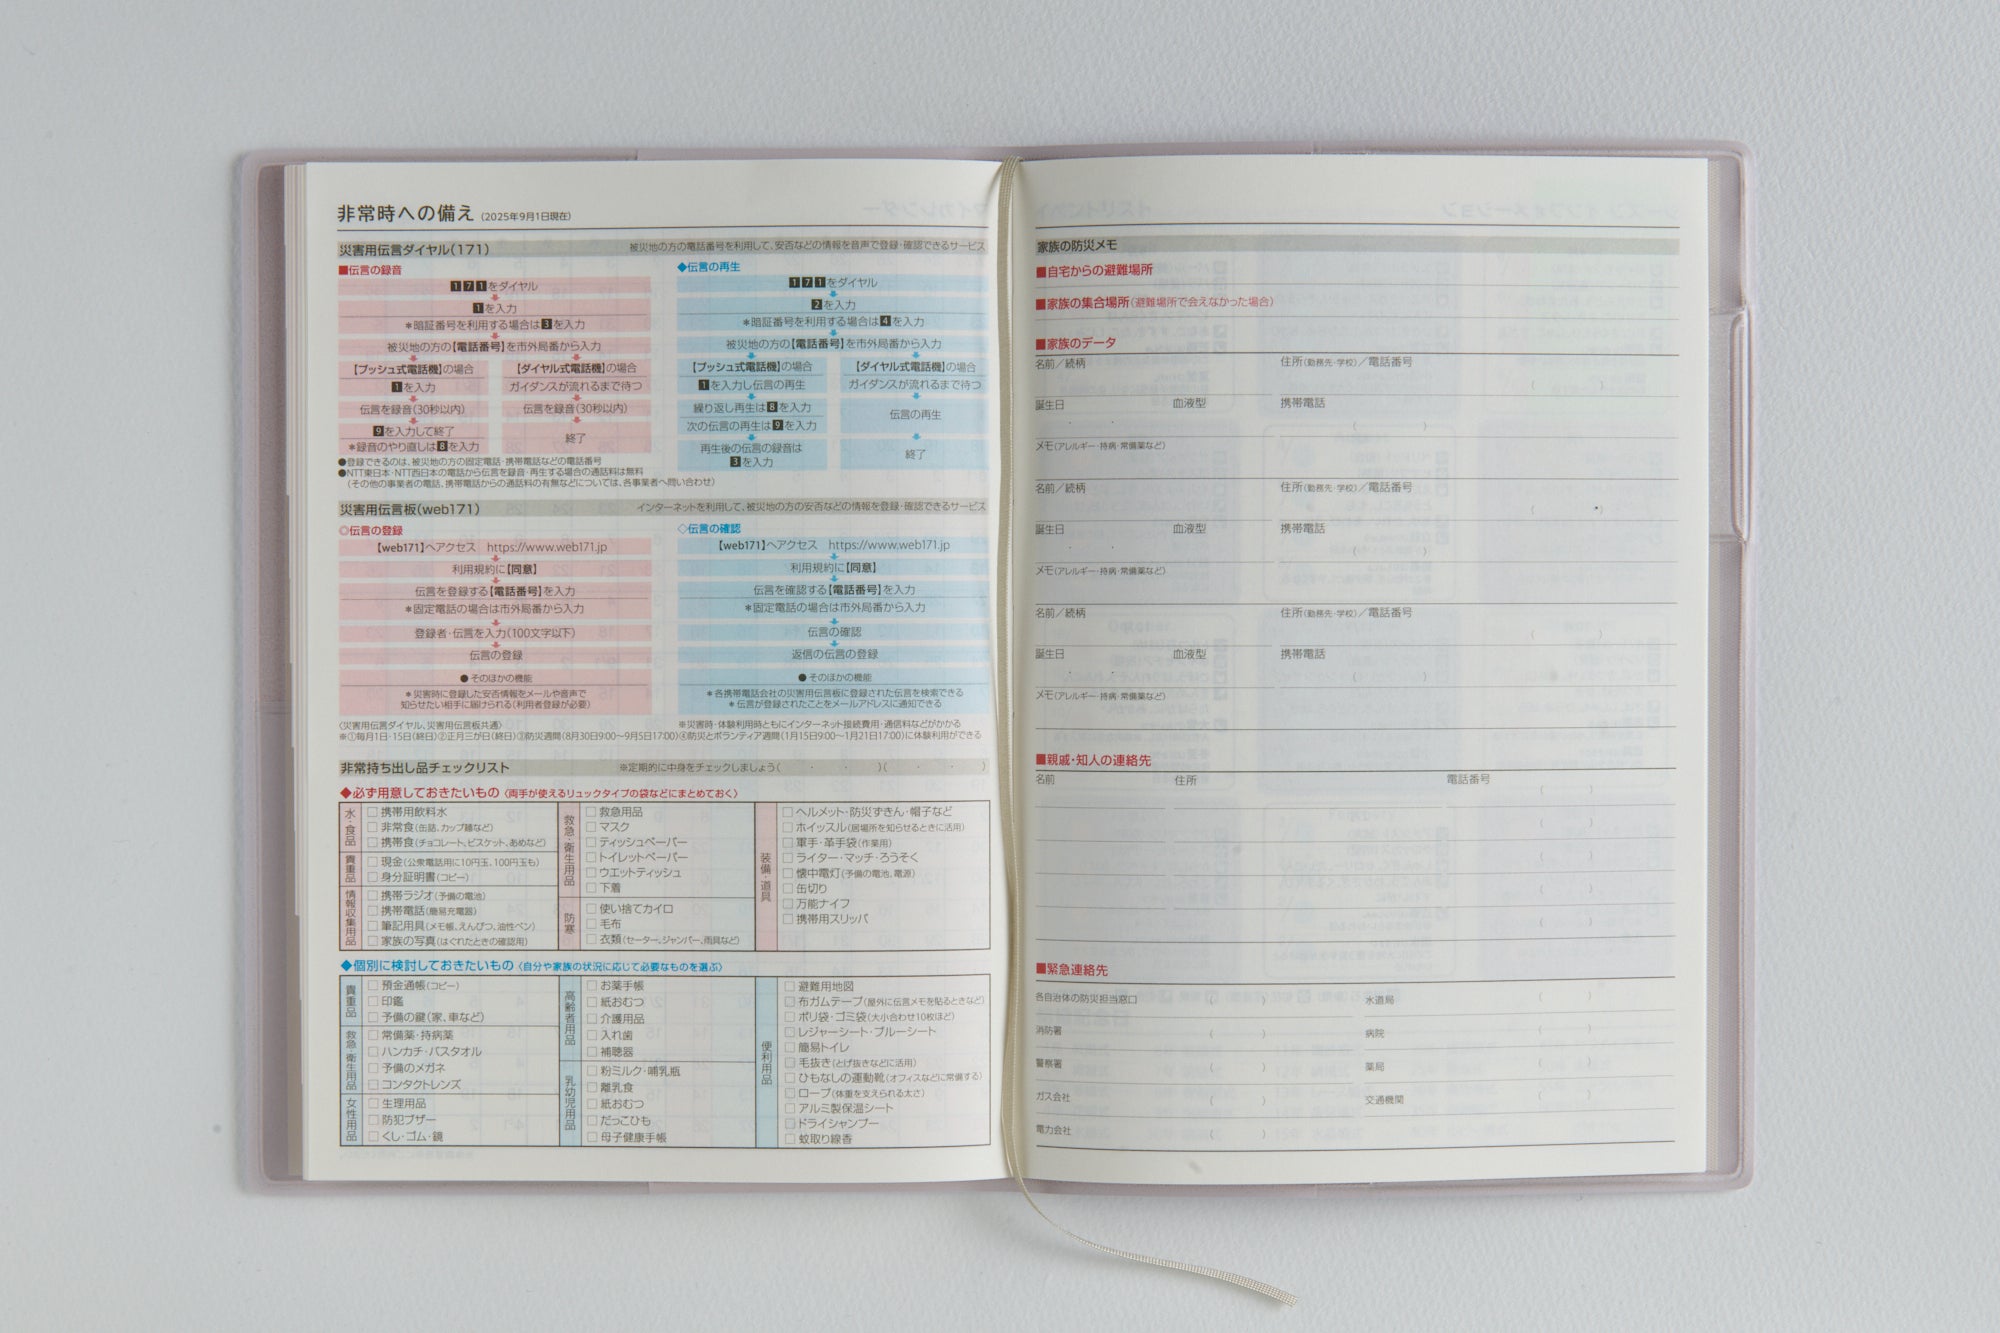 非常時への備え (2025年9月1日現在)
災害用伝言ダイヤル(171) 被災地の方の電話番号を利用して、安否などの情報を音声で登録・確認できるサービス
■伝言の録音
171をダイヤル
1を入力
＊暗証番号を利用する場合は3を入力
被災地の方の【電話番号】を市外局番から入力
【プッシュ式電話機】の場合
1を入力
伝言を録音(30秒以内)
9を入力して終了
＊録音のやり直しは8を入力
【ダイヤル式電話機】の場合
ガイダンスが流れるまで待つ
伝言を録音(30秒以内)
終了
◆伝言の再生
171をダイヤル
2を入力
＊暗証番号を利用する場合は4を入力
被災地の方の【電話番号】を市外局番から入力
【プッシュ式電話機】の場合
1を入力し伝言の再生
繰り返し再生は8を入力
次の伝言の再生は9を入力
再生後の伝言の録音は
3を入力
【ダイヤル式電話機】の場合
ガイダンスが流れるまで待つ
伝言の再生
終了
●登録できるのは、被災地の方の固定電話・携帯電話などの電話番号
●NTT東日本・NTT西日本の電話から伝言を録音・再生する場合の通話料は無料
(その他の事業者の電話、携帯電話からの通話料の有無などについては、各事業者へ問い合わせ)
災害用伝言板(web171) インターネットを利用して、被災地の方の安否などの情報を登録・確認できるサービス
◎伝言の登録
【web171】へアクセス https://www.web171.jp
利用規約に【同意】
伝言を登録する【電話番号】を入力
＊固定電話の場合は市外局番から入力
登録者・伝言を入力(100文字以下)
伝言の登録
●そのほかの機能
＊災害時に登録した安否情報をメールや音声で
知らせたい相手に届けられる(利用者登録が必要)
◇伝言の確認
【web171】へアクセス https://www.web171.jp
利用規約に【同意】
伝言を確認する【電話番号】を入力
＊固定電話の場合は市外局番から入力
伝言の確認
返信の伝言の登録
●そのほかの機能
＊各携帯電話会社の災害用伝言板に登録された伝言を検索できる
＊伝言が登録されたことをメールアドレスに通知できる
〈災害用伝言ダイヤル、災害用伝言板共通〉 ※災害時・体験利用時ともにインターネット接続費用・通信料などがかかる
※①毎月1日・15日(終日)②正月三が日(終日)③防災週間(8月30日9:00〜9月5日17:00)④防災とボランティア週間(1月15日9:00〜1月21日17:00)に体験利用ができる
非常持ち出し品チェックリスト ※定期的に中身をチェックしましょう( ・ ・ )( ・ ・ )
◆必ず用意しておきたいもの〈両手が使えるリュックタイプの袋などにまとめておく〉
水・食品
□携帯用飲料水
□非常食(缶詰、カップ麺など)
□携帯食(チョコレート、ビスケット、あめなど)
貴重品
□現金(公衆電話用に10円玉、100円玉も)
□身分証明書(コピー)
情報収集用品
□携帯ラジオ(予備の電池)
□携帯電話(簡易充電器)
□筆記用具(メモ帳、えんぴつ、油性ペン)
□家族の写真(はぐれたときの確認用)
救急・衛生用品
□救急用品
□マスク
□ティッシュペーパー
□トイレットペーパー
□ウエットティッシュ
□下着
防寒
□使い捨てカイロ
□毛布
□衣類(セーター、ジャンパー、雨具など)
装備・道具
□ヘルメット・防災ずきん・帽子など
□ホイッスル(居場所を知らせるときに活用)
□軍手・革手袋(作業用)
□ライター・マッチ・ろうそく
□懐中電灯(予備の電池、電源)
□缶切り
□万能ナイフ
□携帯用スリッパ
◆個別に検討しておきたいもの〈自分や家族の状況に応じて必要なものを選ぶ〉
貴重品
□預金通帳(コピー)
□印鑑
□予備の鍵(家、車など)
救急・衛生用品
□常備薬・持病薬
□ハンカチ・バスタオル
□予備のメガネ
□コンタクトレンズ
女性用品
□生理用品
□防犯ブザー
□くし・ゴム・鏡
高齢者用品
□お薬手帳
□紙おむつ
□介護用品
□入れ歯
□補聴器
乳幼児用品
□粉ミルク・哺乳瓶
□離乳食
□紙おむつ
□だっこひも
□母子健康手帳
便利用品
□避難用地図
□布ガムテープ(屋外に伝言メモを貼るときなど)
□ポリ袋・ゴミ袋(大小合わせ10枚ほど)
□レジャーシート・ブルーシート
□簡易トイレ
□毛抜き(とげ抜きなどに活用)
□ひもなしの運動靴(オフィスなどに常備する)
□ロープ(体重を支えられる太さ)
□アルミ製保温シート
□ドライシャンプー
□蚊取り線香
家族の防災メモ
■自宅からの避難場所
■家族の集合場所(避難場所で会えなかった場合)
■家族のデータ
名前／続柄 住所(勤務先・学校)／電話番号
( )
誕生日 血液型 携帯電話
・ ・ ( )
メモ(アレルギー・持病・常備薬など)
名前／続柄 住所(勤務先・学校)／電話番号
( )
誕生日 血液型 携帯電話
・ ・ ( )
メモ(アレルギー・持病・常備薬など)
名前／続柄 住所(勤務先・学校)／電話番号
( )
誕生日 血液型 携帯電話
・ ・ ( )
メモ(アレルギー・持病・常備薬など)
■親戚・知人の連絡先
名前 住所 電話番号
( )
( )
( )
( )
( )
( )
( )
■緊急連絡先
各自治体の防災担当窓口 ( ) 水道局 ( )
消防署 ( ) 病院 ( )
警察署 ( ) 薬局 ( )
ガス会社 ( ) 交通機関 ( )
電力会社 ( ) ( )